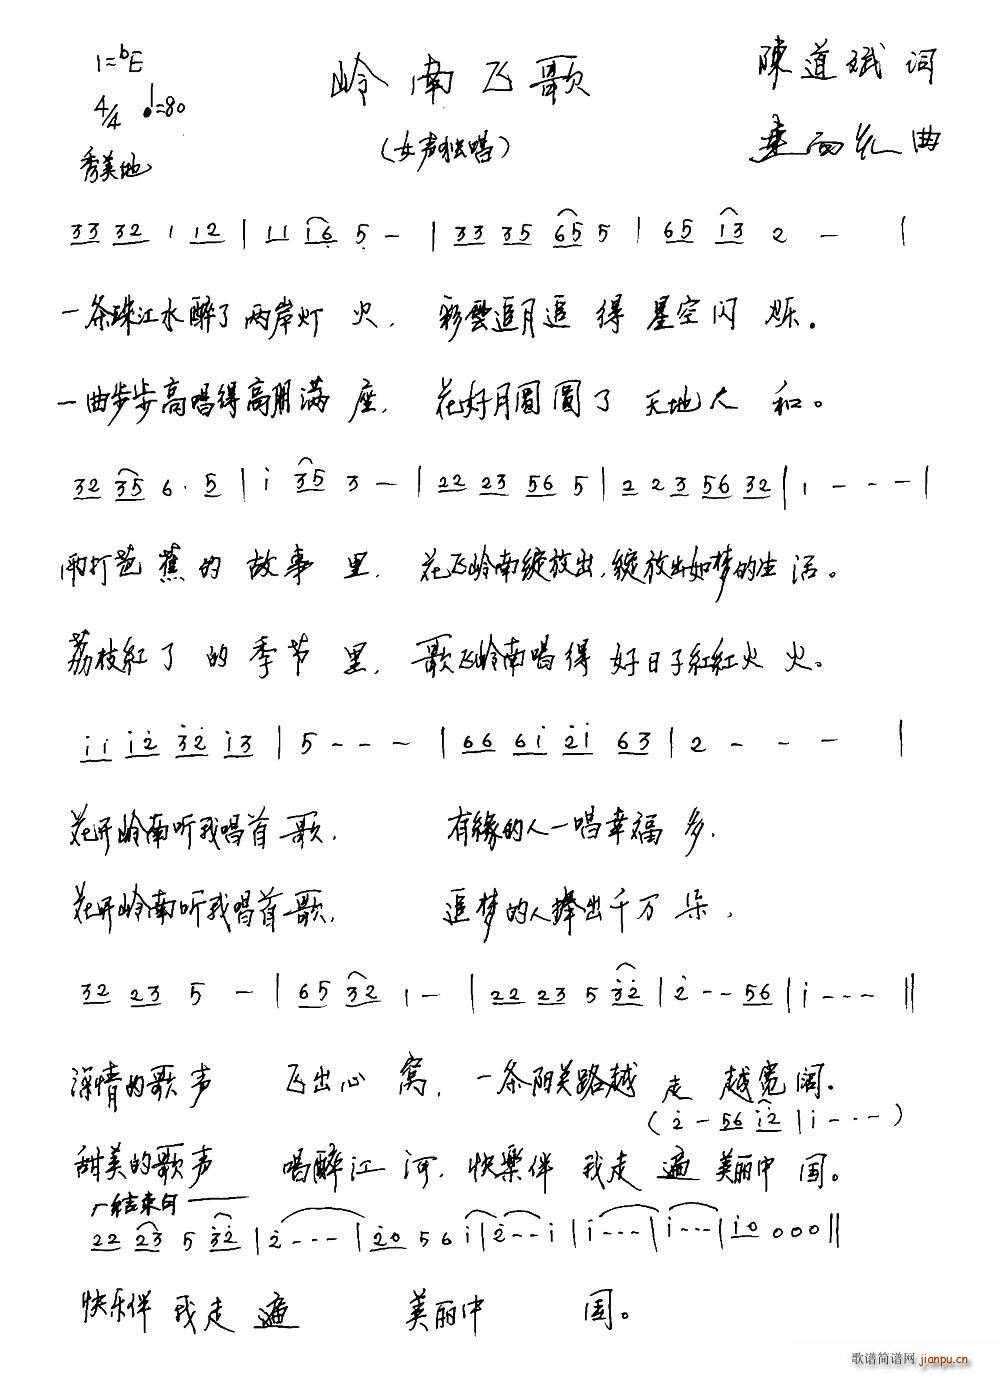 1=ᵇE
4/4 ♩=80
秀美地
岭南飞歌
(女声独唱)
陳道斌 词
曲
33 32 1 12 | 11 16 5 - | 33 35 65 5 | 65 13 2 - |
一条珠江水醉了两岸灯火, 彩雲追月追得星空闪烁。
一曲步步高唱得高朋满座, 花好月圓圓了天地人和。
32 35 6· 5 | i 35 3 - | 22 23 56 5 | 2 2 3 56 32 | 1 - - - |
雨打芭蕉的故事里, 花飞岭南绽放出,绽放出如梦的生活。
荔枝紅了的季节里, 歌飞岭南唱得好日子紅紅火火。
ii i2 32 i3 | 5 - - - | 66 6i 2i 63 | 2 - - - |
花开岭南听我唱首歌, 有緣的人一唱幸福多,
花开岭南听我唱首歌, 追梦的人捧出千万朵,
32 23 5 - | 65 32 1 - | 22 23 5 32 | 2 - - 56 | i - - - ||
深情的歌声 飞出心窝, 一条阳关路越走越宽阔。
(2 - 56 i2 | i - - - )
甜美的歌声 唱醉江河, 快樂伴我走遍美丽中国。
结束句
22 23 5 32 | 2 - - - | 20 5 6 i | 2 - - i | i - - - | i - - - | i0 000 ||
快乐伴我走遍 美丽中国。
歌谱简谱网 jianpu.cn